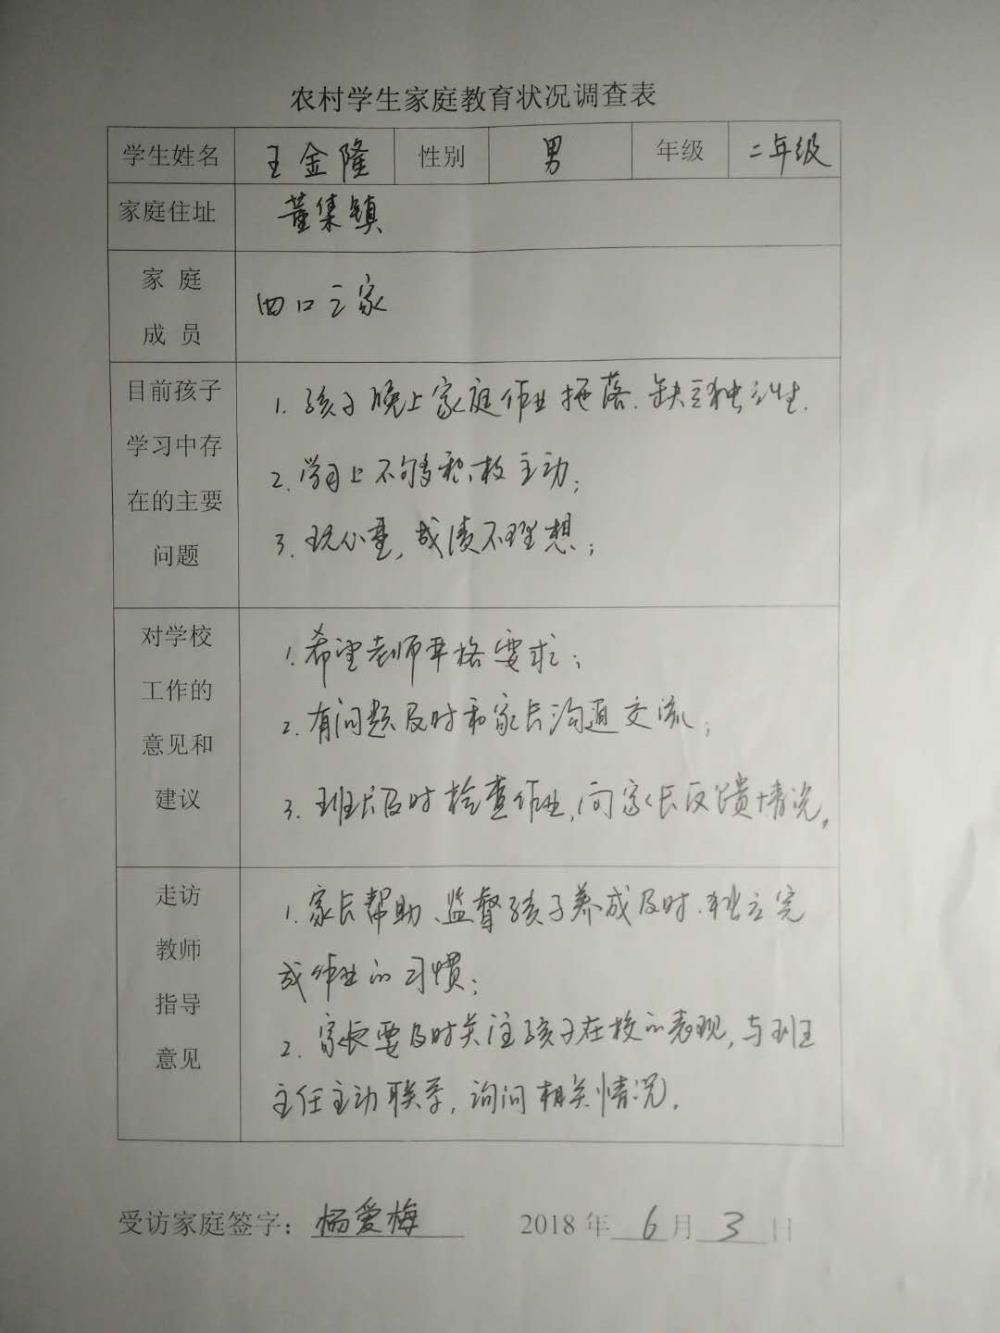 农村学生家庭教育状况调查表
学生姓名 王金隆 性别 男 年级 二年级
家庭住址 董集镇
家庭
成员
四口之家
目前孩子
学习中存
在的主要
问题
1. 孩子晚上家庭作业拖落、缺乏独立性.
2. 学习上不够积极主动；
3. 玩心重，成绩不理想；
对学校
工作的
意见和
建议
1. 希望老师严格要求；
2. 有问题及时和家长沟通交流；
3. 班长及时检查作业，向家长反馈情况。
走访
教师
指导
意见
1. 家长帮助、监督孩子养成及时、独立完
成作业的习惯；
2. 家长要及时关注孩子在校的表现，与班
主任主动联系，询问相关情况。
受访家庭签字：杨爱梅 2018年6月3日